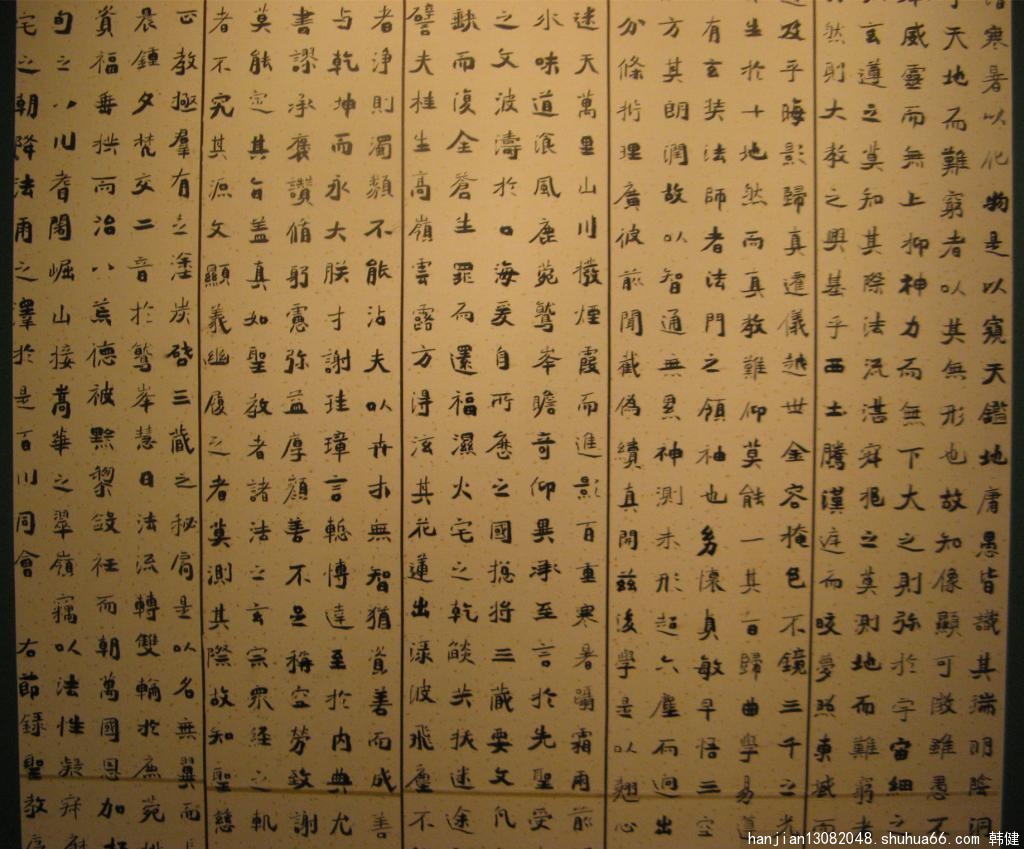 寒暑以化物是以窺天鑑地庸愚皆識其端明陰洞
天地而難窮者以其無形也故知像顯可徵雖愚
威靈而無上抑神力而無下大之則弥於宇宙細之
玄遵之莫知其際法流湛寂挹之莫測地而難窮者
然則大教之興基乎西土騰漢庭而皎夢照東域而
及乎晦影歸真遷儀越世金容掩色不鏡三千之光
生於十地然而真教難仰莫能一其旨歸曲學易遵
有玄奘法師者法門之領袖也幼懷貞敏早悟三空
方其朗潤故以智通無累神測未形超六塵而迥出
分條析理廣彼前聞截偽續真開茲後學是以翹心
迷天萬里山川撥煙霞而進影百重寒暑躡霜雨前
水味道飡風鹿菀鷲峯瞻奇仰異承至言於先聖受
之文波濤於口海爰自所歷之國揔將三藏要文凡
缺而復全蒼生罪而還福濕火宅之乾燄共拔迷途
譬夫桂生高嶺雲露方得泫其花蓮出淥波飛塵不
者淨則濁類不能沾夫以卉木無智猶資善而成善
与乾坤而永大朕才謝珪璋言慙博達至於內典尤
書謬承褒讚脩躬憲弥益厚顏善不足稱空勞致謝
莫能定其旨蓋真如聖教者諸法之玄宗眾經之軌
者不究其源文顯義幽履之者莫測其際故知聖慈
正教極羣有之塗炭啓三藏之秘扃是以名無翼而
晨鍾夕梵交二音於鷲峯慧日法流轉雙輪於鹿菀
賞福垂拱而治八荒德被黔黎斂衽而朝萬國恩加
句之八川耆闍崛山接嵩華之翠嶺竊以法性凝寂
宅之朝降法雨之澤於是百川同會 右節錄聖教序
hanjian13082048.shuhua66.com 韩健